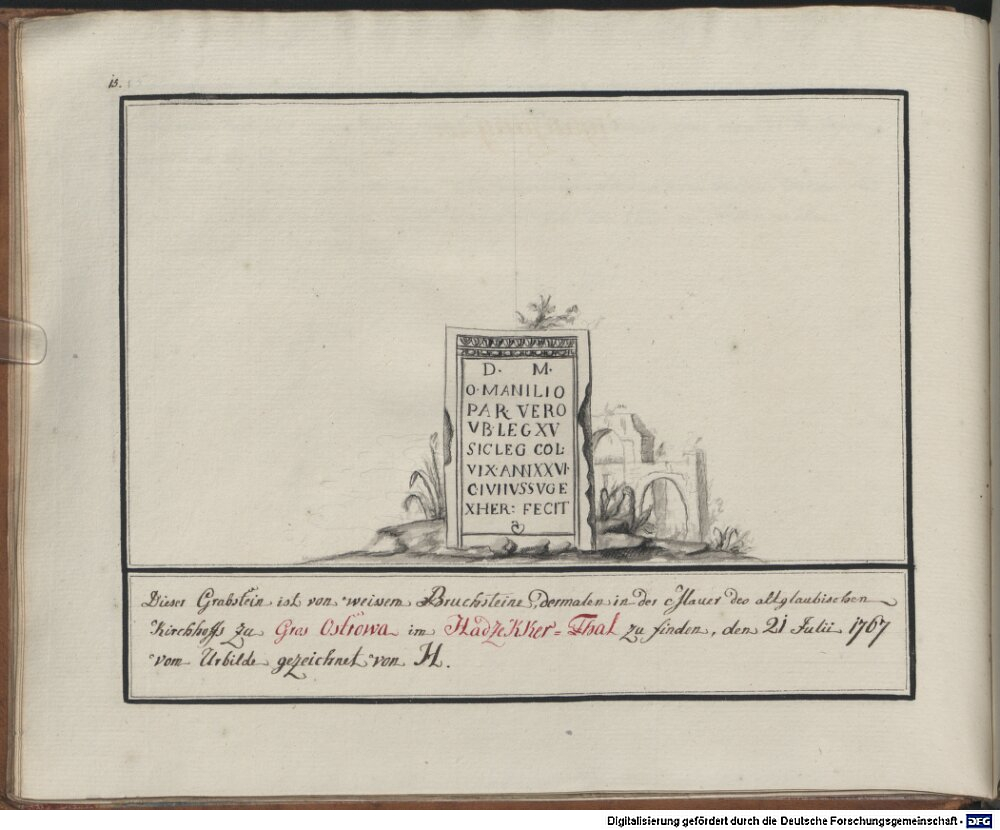 15.
D· M·
O·MANILIO
PAR VERO
VB·LEGXV
SICLEG COL·
VIX·ANNXXVI·
C·IVIIVSSVGE
XHER: FECIT
Dieser Grabstein ist von weissem Bruchsteine, dermalen in der Mauer des altglaubischen
Kirchhoffs zu Gros Ostrowa im Hadzekker=Thal zu finden, den 21 Julii 1767
vom Urbilde gezeichnet von H.
Digitalisierung gefördert durch die Deutsche Forschungsgemeinschaft - DFG